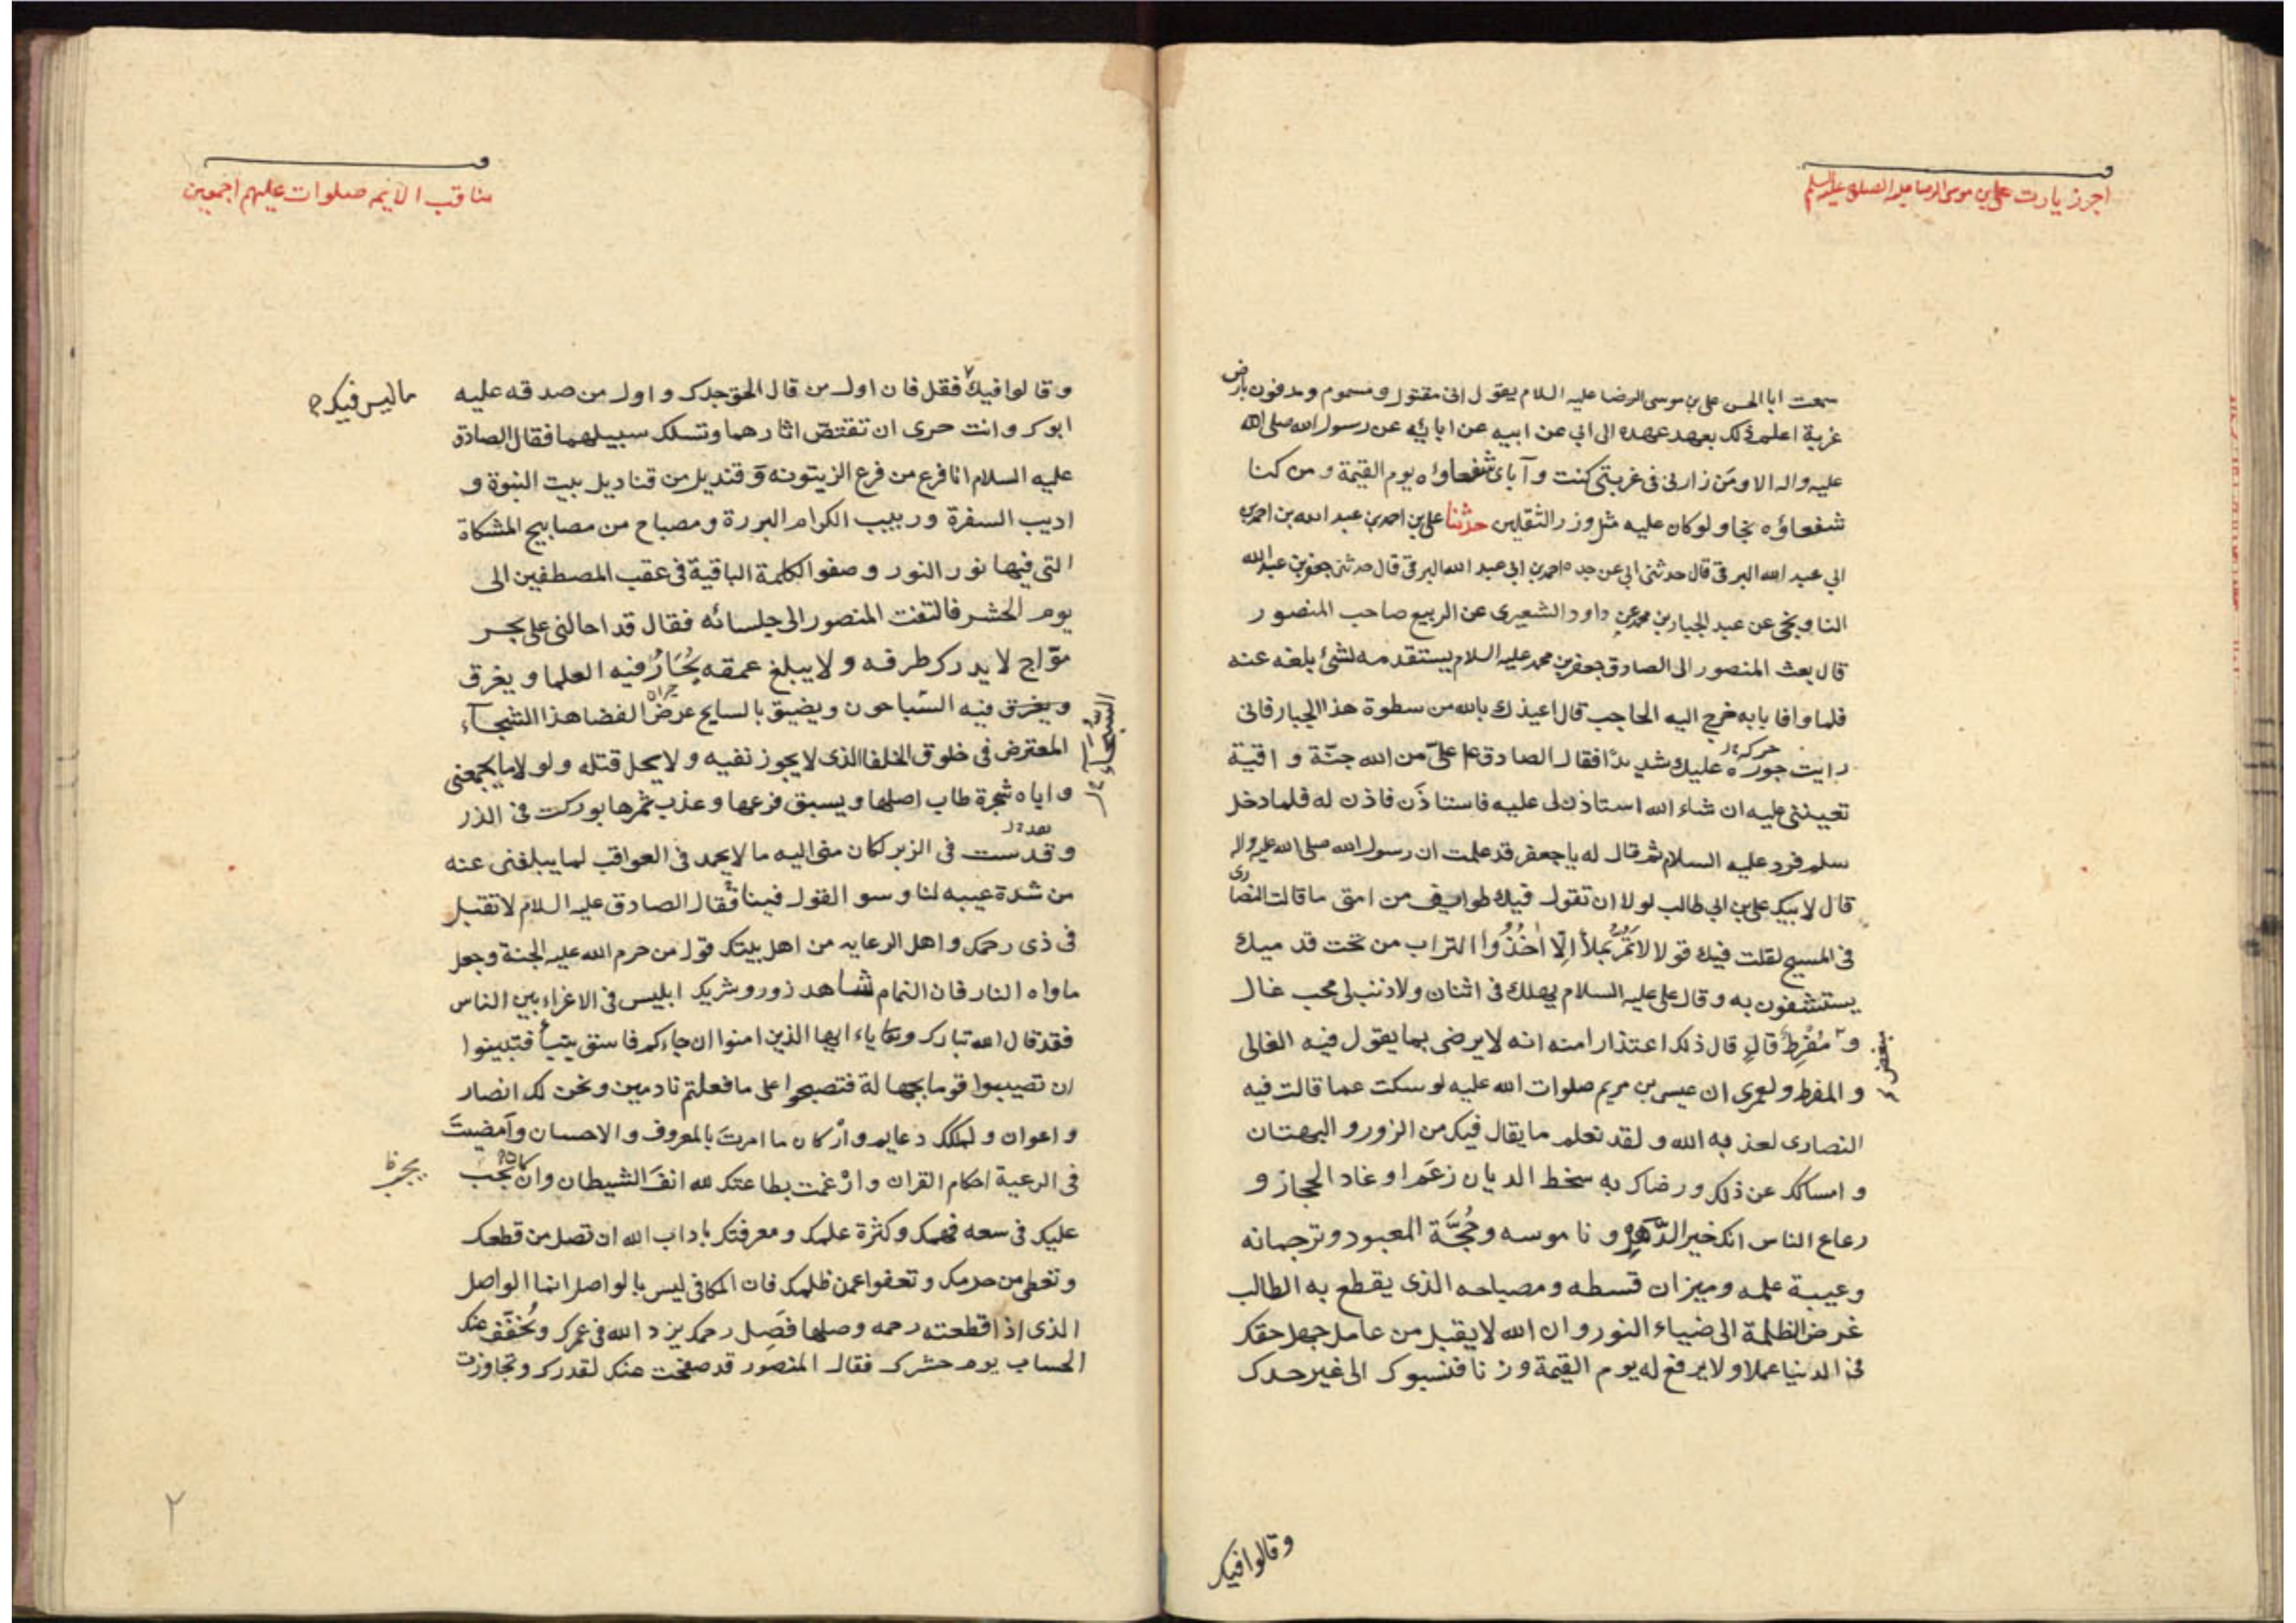 اجر زيارت علي بن موسى الرضا عليه الصلوة عليه السلم
سمعت ابا الحسن علي بن موسى الرضا عليه السلام يقول اني مقتول و مسموم و مدفون بارض
غربة اعلم ذلك بعهد عهده الى ابي عن ابيه عن ابايه عن رسول الله صلى الله
عليه واله الا ومن زارني في غربتي كنت و آباى شفعاؤه يوم القيمة و من كنا
شفعاؤه نجا و لو كان عليه مثل وزر الثقلين حدثنا علي بن احمد بن عبد الله بن احمد بن
ابي عبد الله البرقي قال حدثني ابي عن جده احمد بن ابي عبد الله البرقي قال حدثني جعفر بن عبد الله
الناوبخى عن عبد الجبار بن محمد عن داود الشعيرى عن الربيع صاحب المنصور
قال بعث المنصور الى الصادق جعفر بن محمد عليه السلام يستقدمه لشئ بلغه عنه
فلما وافا بابه خرج اليه الحاجب قال اعيذك بالله من سطوة هذا الجبار فانى
حركه
رايت جوره عليك شديدًا فقال الصادق ع علىّ من الله جنّة و اقية
تعينني عليه ان شاء الله استاذن لى عليه فاستاذَن فاذن له فلما دخل
سلم فرد عليه السلام ثم قال له يا جعفر قد علمت ان رسول الله صلى الله عليه واله
قال لابيك علي بن ابي طالب لولا ان تقول فيك طوايف من امتى ما قالت النصارى
في المسيح لقلت فيك قولا لا تمُّر بمَلأ اِلّا اَخُذُوا التراب من تحت قدميك
يستشفون به و قال علي عليه السلام يهلك في اثنان و لا ذنب لى محب غال
و مُفرِط قال قال ذلك اعتذارا منه انه لا يرضى بما يقول فيه الغالى
بغض
و المفرط و لعمرى ان عيسى بن مريم صلوات الله عليه لو سكت عما قالت فيه
النصارى لعذبه الله و لقد تعلم ما يقال فيك من الزور و البهتان
و امساكك عن ذلك و رضاك به سخط الديان زعَم اوغاد الحجاز و
رعاع الناس انك خير الدَّهرِ و ناموسه و حُجَّة المعبود و ترجمانه
و عيبة علمه و ميزان قسطه و مصباحه الذى يقطع به الطالب
غرض الظلمة الى ضياء النور و ان الله لا يقبل من عامل جهل حقك
في الدنيا عملا و لا يرفع له يوم القيمة وزنا فنسبوك الى غير حدك
وقالوا فيك
مناقب الائيمه صلوات عليهم اجمعين
و قالوا فيك فقل فان اول من قال الحق جدك و اول من صدقه عليه
ما ليس فيك
ابوك و انت حرى ان تقتصّ اثارهما و تسلك سبيلهما فقال الصادق
عليه السلام انا فرع من فرع الزيتونه و قنديل من قناديل بيت النبوة و
اديب السفرة و ربيب الكرام البررة و مصباح من مصابيح المشكاة
التى فيها نور النور و صفو الكلمة الباقية فى عقب المصطفين الى
يوم الحشر فالتفت المنصور الى جلسائه فقال قد احالنى على بحر
موّاج لا يدرك طرفه و لا يبلغ عمقه يُحَارُ فيه العلما و يغرق
و يغرق فيه السّباحون و يضيق بالسابح عرض الفضا هذا الشجآء
المعترض فى خلوق الخلفا الذى لا يجوز نفيه و لا يحل قتله و لولا ما يجمعنى
و اياه شجرة طاب اصلها و يسبق فرعها و عذب ثمرها بوركت فى الذر
و قدست فى الزبر لكان منى اليه ما لا يحمد فى العواقب لما يبلغنى عنه
من شدة عيبه لنا و سو القول فينا فقال الصادق عليه السلام لا تقبل
فى ذى رحمك و اهل الرعايه من اهل بيتك قول من حرم الله عليه الجنة و جعل
ماواه النار فان النمام شاهد زور و شريك ابليس فى الاغراء بين الناس
فقد قال الله تبارك و تعا ياء ايها الذين امنوا ان جاءكم فاسق بنبأ فتبينوا
ان تصيبوا قوما بجهالة فتصبحوا على ما فعلتم نادمين و نحن لك انصار
و اعوان و لملكك دعايم و اركان ما امرتَ بالمعروف و الاحسان و اَمضيتَ
فى الرعية احكام القران و ارْغمت بطاعتك لله انفَ الشيطان و ان يجب
يجب ظ
عليك فى سعه فهمك و كثرة علمك و معرفتك باداب الله ان تصل من قطعك
و تعطى من حرمك و تعفوا عمن ظلمك فان المكافى ليس بالواصل انما الواصل
الذى اذا قطعته رحمه وصلها فصِل رحمك يزد الله فى عمرك و يُخفّف عنك
الحساب يوم حشرك فقال المنصور قد صفحت عنك لقدرك و تجاوزت
٢